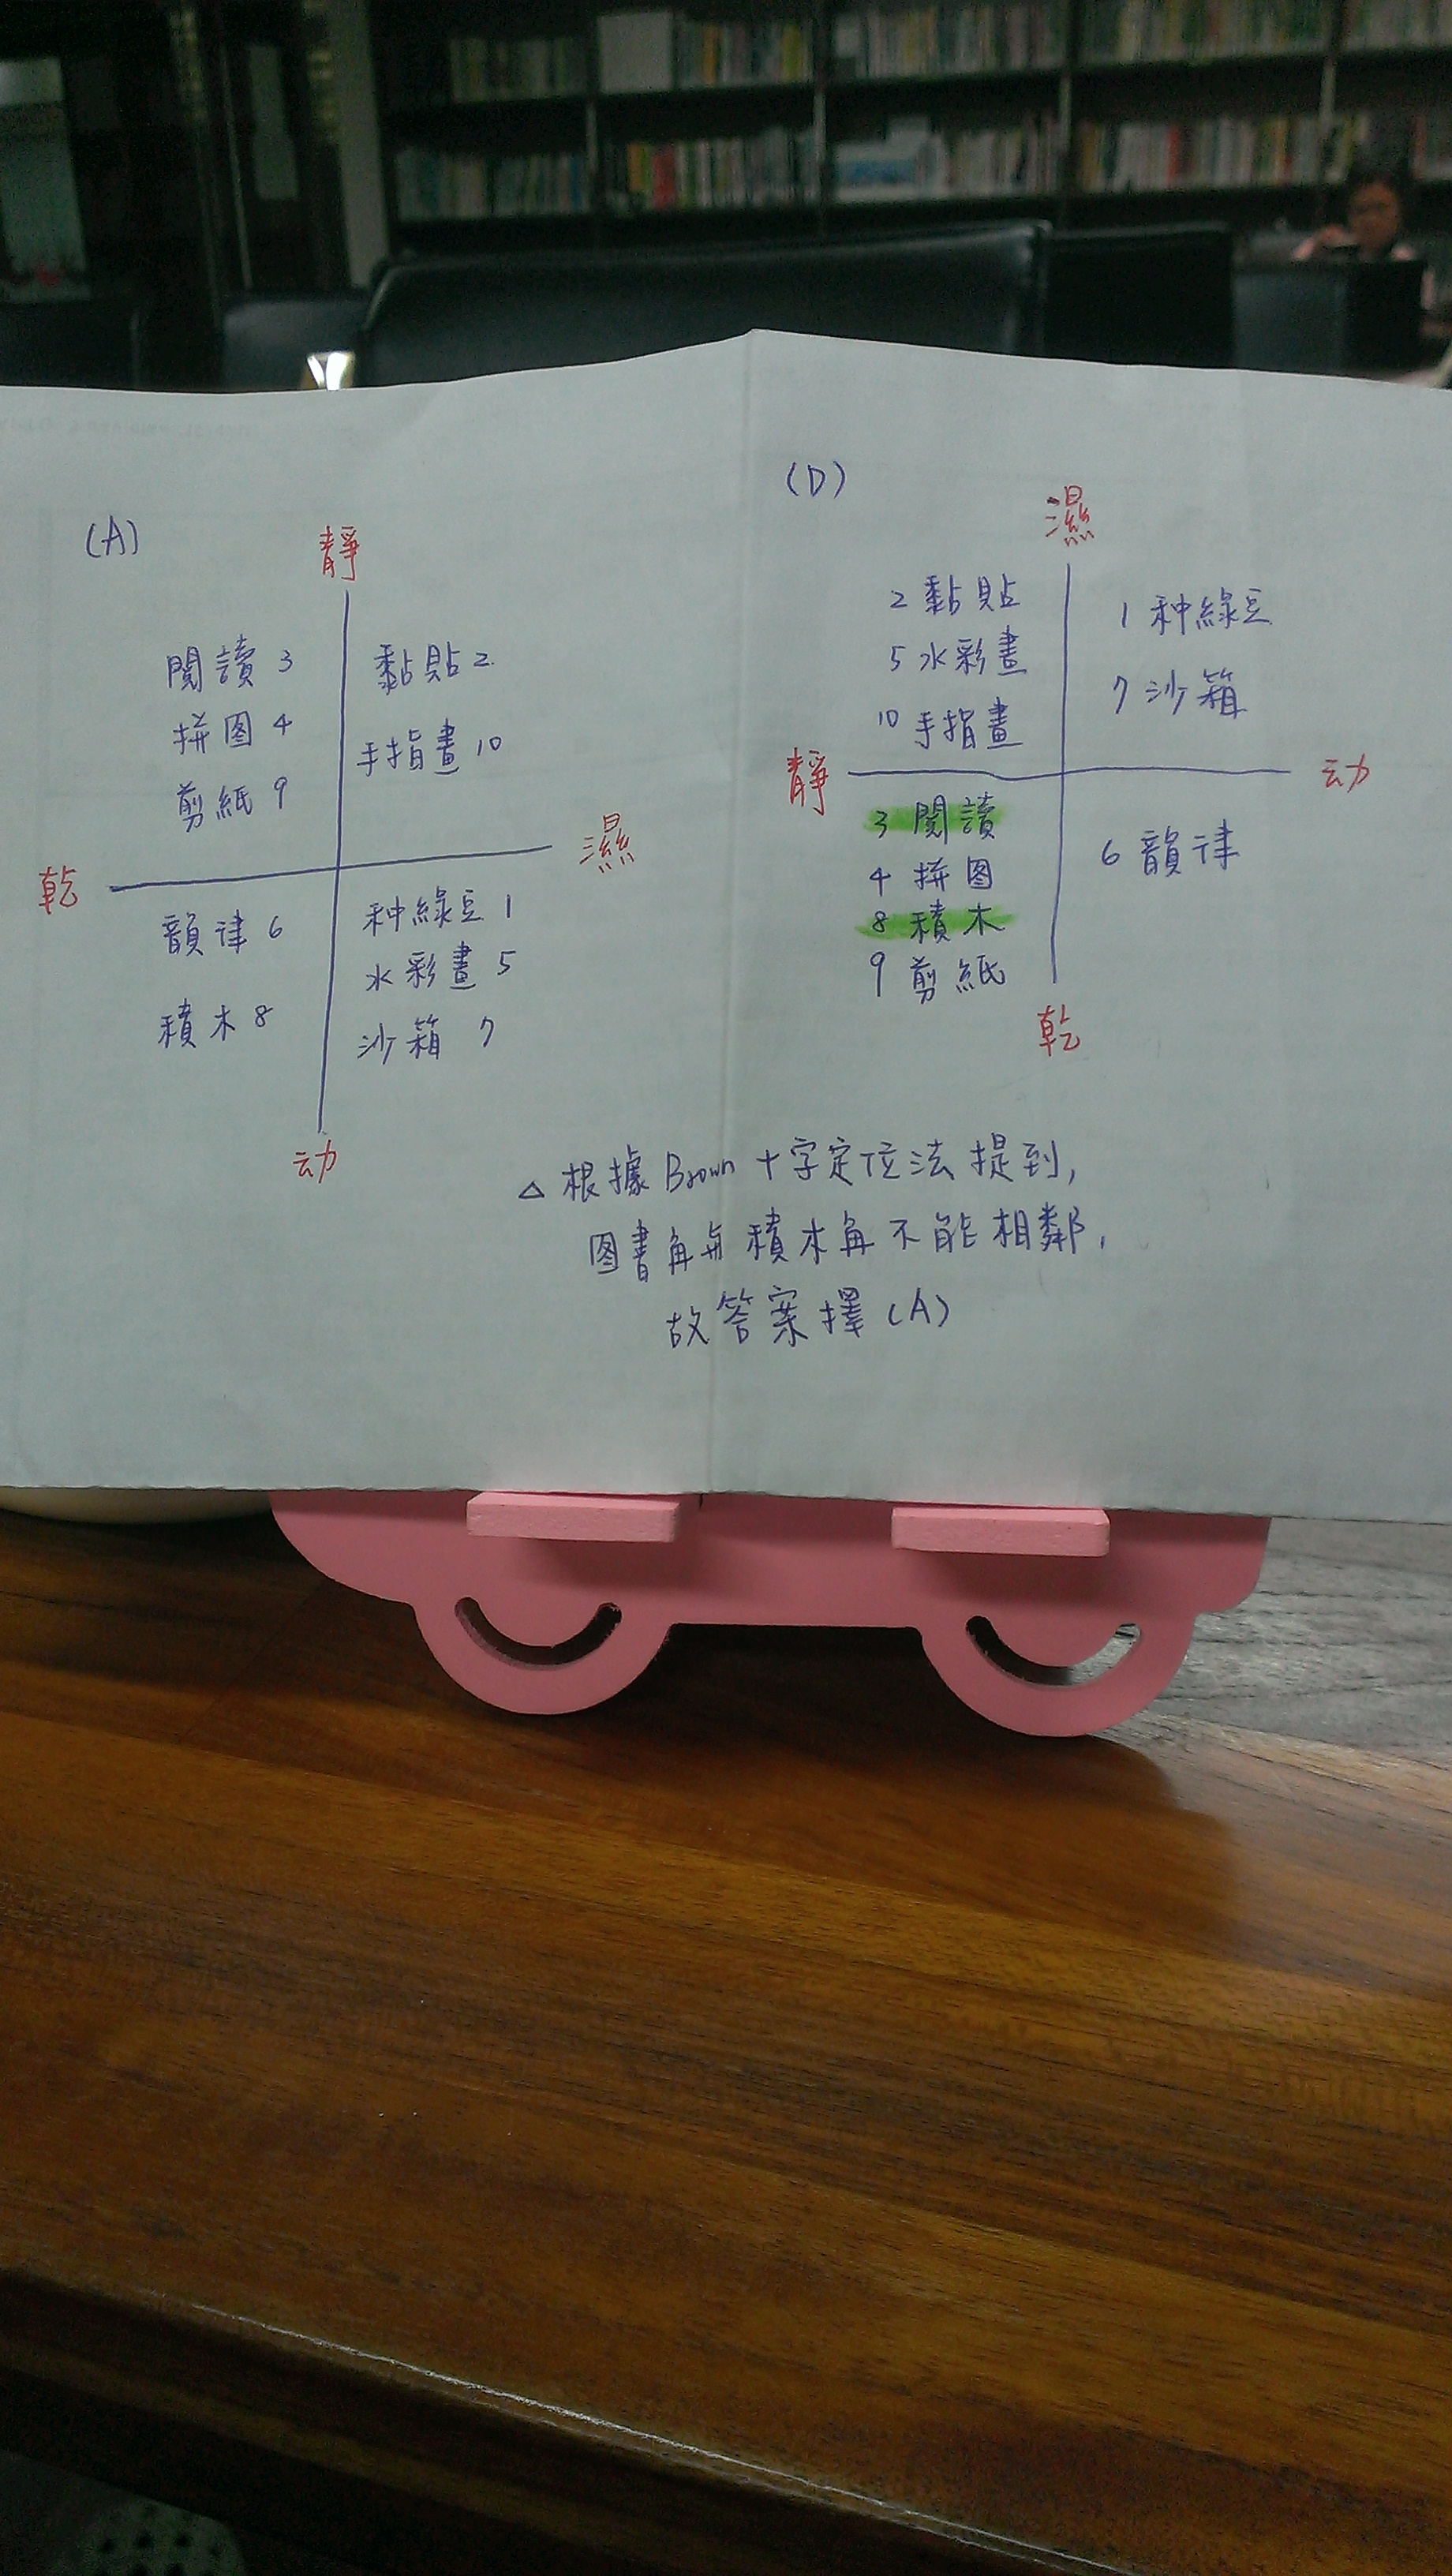 (A)
靜
閱讀 3
拼图 4
剪紙 9
黏貼 2
手指畫 10
乾
濕
韻律 6
積木 8
种綠豆 1
水彩畫 5
沙箱 7
动
(D)
濕
2 黏貼
5 水彩畫
10 手指畫
1 种綠豆
7 沙箱
靜
动
3 閱讀
4 拼图
8 積木
9 剪紙
6 韻律
乾
△ 根據 Brown 十字定位法提到,
图書角与積木角不能相鄰,
故答案擇 (A)